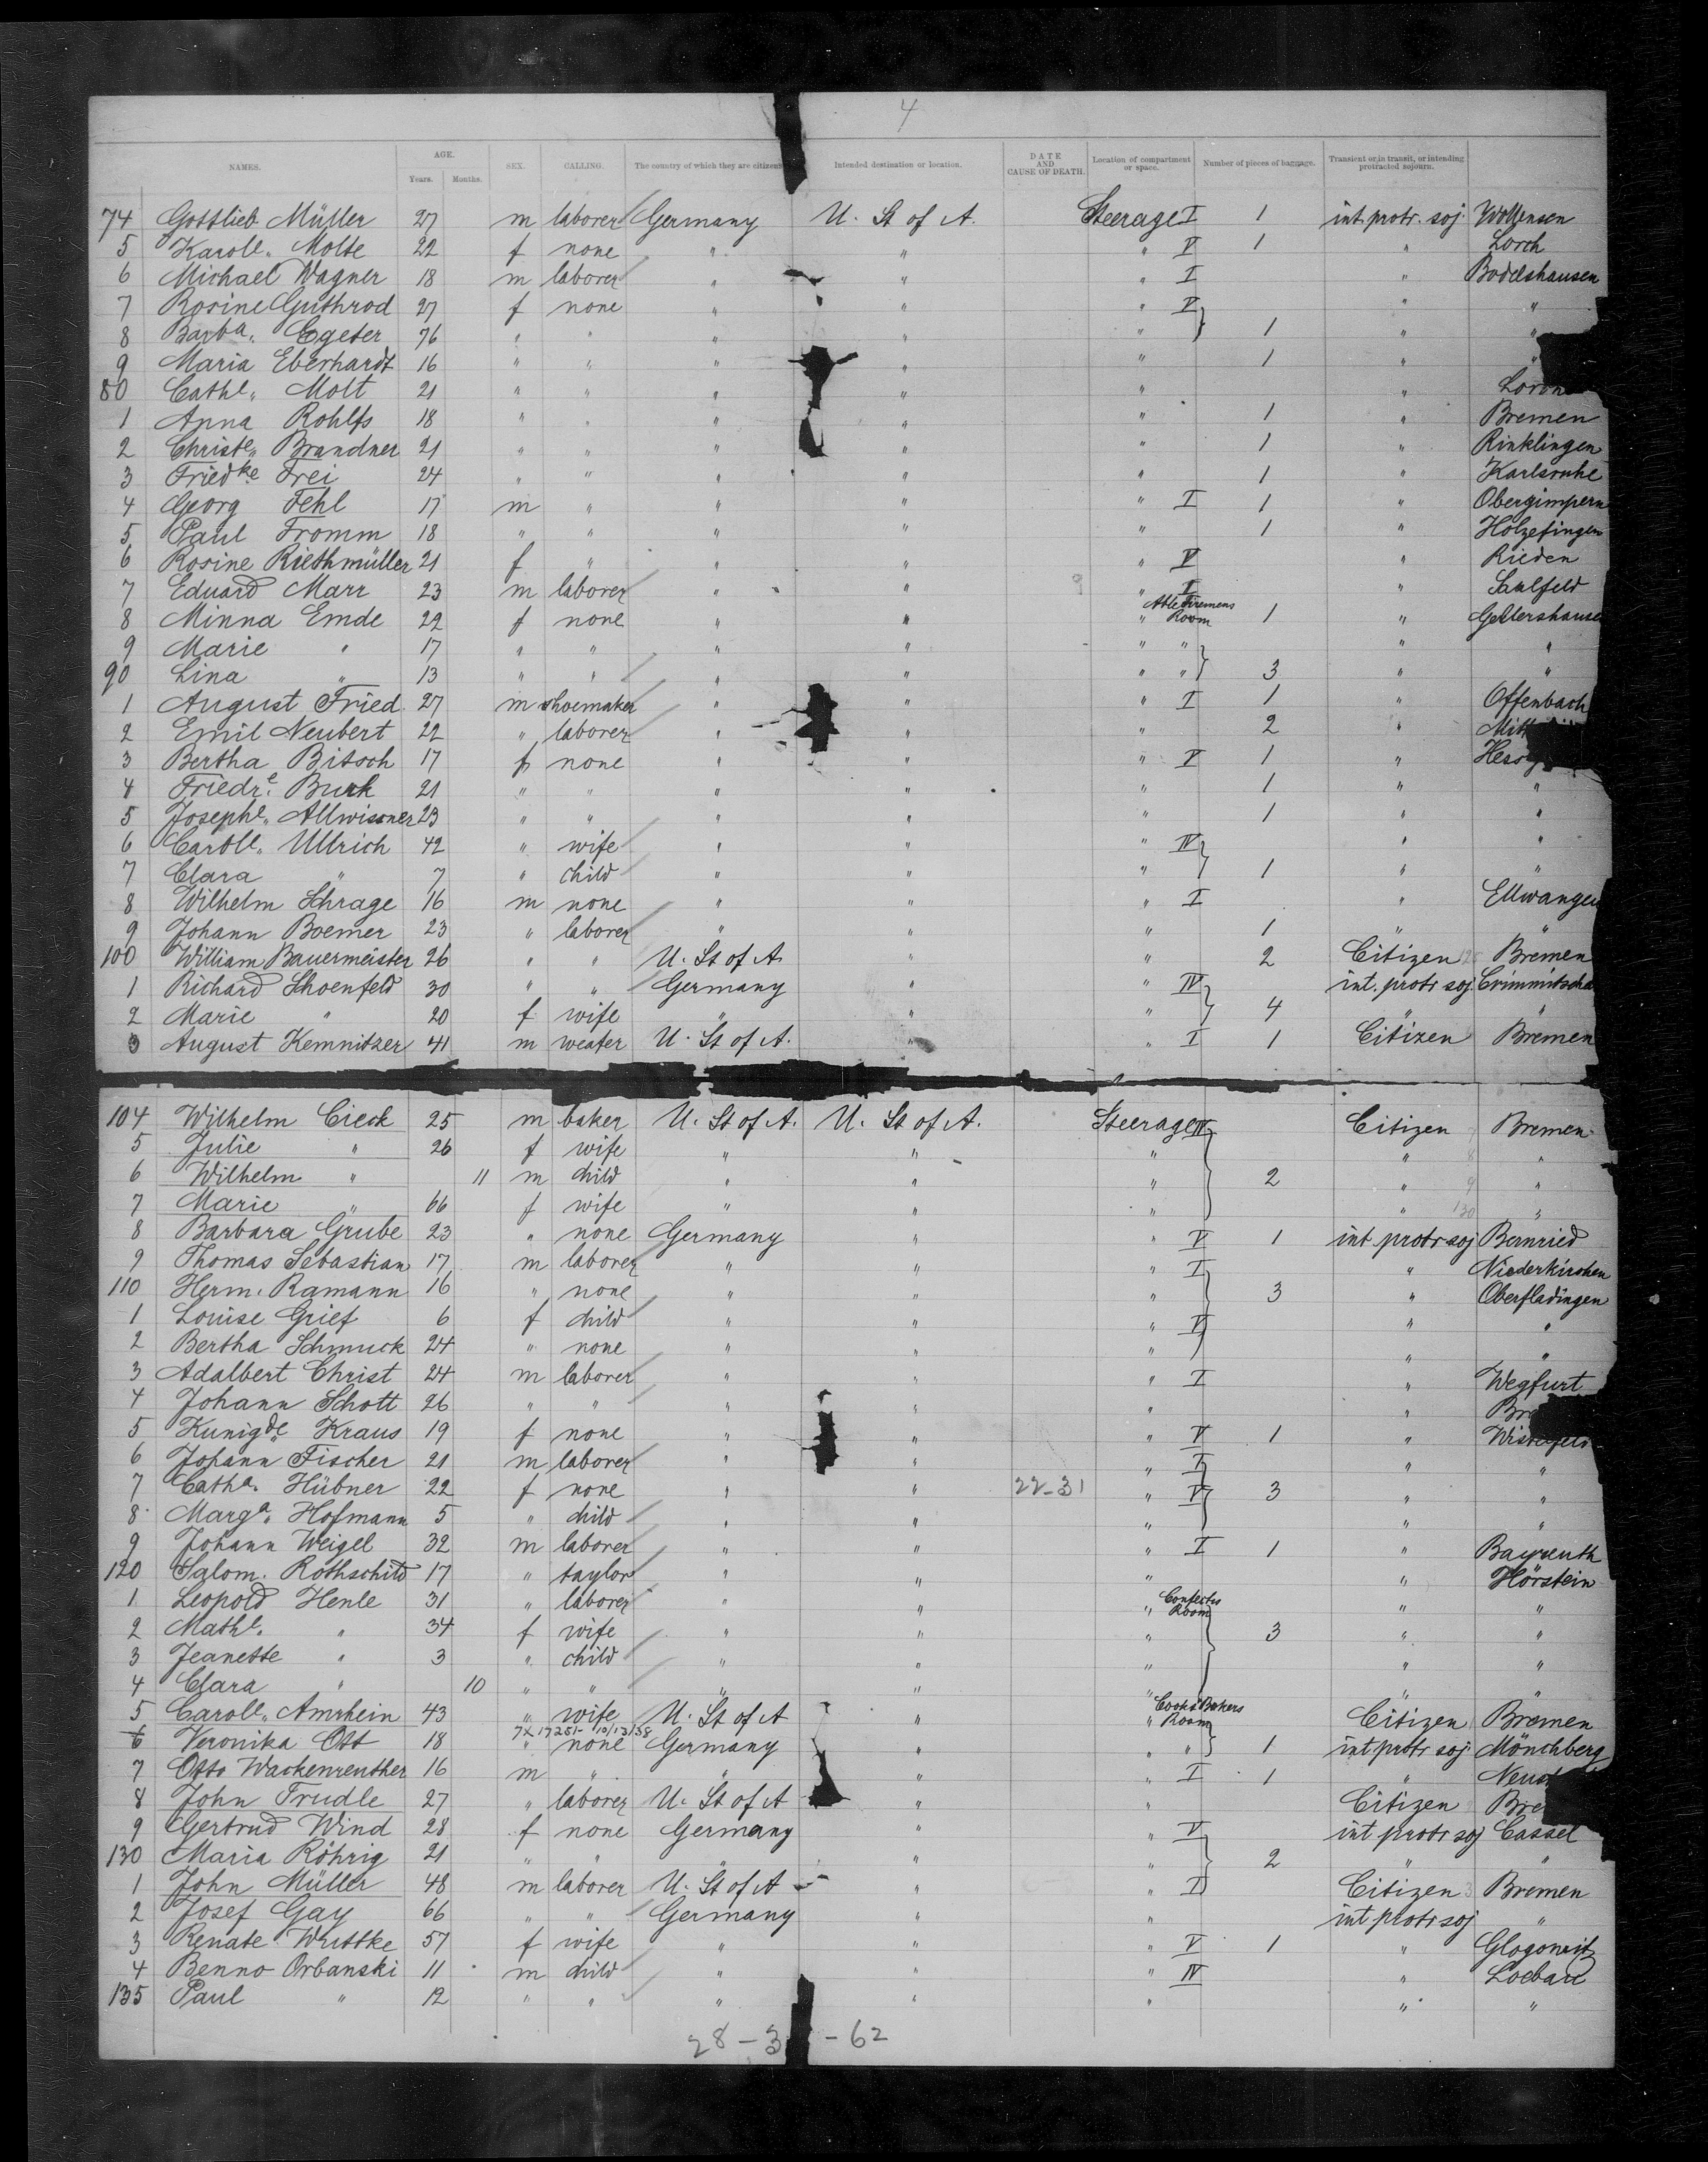 4
NAMES. AGE. Years. Months. SEX. CALLING. The country of which they are citizens Intended destination or location. DATE AND CAUSE OF DEATH. Location of compartment or space. Number of pieces of baggage. Transient or in transit, or intending protracted sojourn.
74 Gottlieb Müller 27 m laborer Germany U. St of A. Steerage I 1 int. protr. soj.
5 Karole. Molte 22 f none " " " V 1 " Lorch
6 Michael Wagner 18 m laborer " " " I " Bodelshausen
7 Rosine Guthrod 27 f none " " " V " "
8 Barba. Egeter 76 " " " " " 1 " "
9 Maria Eberhardt 16 " " " " " 1 " "
80 Cathe. Molt 21 " " " " " "
1 Anna Rohlfs 18 " " " " " 1 " Bremen
2 Christe. Brandner 21 " " " " " 1 " Rinklingen
3 Friedke Frei 24 " " " " " 1 " Karlsruhe
4 Georg Fehl 17 m " " " " I 1 " Obergimpern
5 Paul Fromm 18 " " " " " 1 " Holzefingen
6 Rosine Riethmüller 21 f " " " " V " Rieden
7 Eduard Marr 23 m laborer " " " I " Saalfeld
8 Minna Emde 22 f none " " " Firemens Room 1 " Gellershause
9 Marie " 17 " " " " " " " "
90 Lina " 13 " " " " " " 3 " "
1 August Fried 27 m shoemaker " " " I 1 " Offenbach
2 Emil Neubert 22 " laborer " " " 2 " Mitt
3 Bertha Bitsch 17 f none " " " V 1 " Hess
4 Friedre. Burk 21 " " " " " 1 " "
5 Josephe. Allwissner 23 " " " " " 1 " "
6 Carole. Ullrich 42 " wife " " " IV " "
7 Clara " 7 " child " " " 1 " "
8 Wilhelm Schrage 16 m none " " " I " Ellwangen
9 Johann Boemer 23 " laborer " " " 1 " "
100 William Bauermeister 26 " " U. St of A. " " 2 Citizen Bremen
1 Richard Shoenfeld 30 " " Germany " " IV int. protr soj. Crimmitscha
2 Marie " 20 f wife " " " 4 " "
3 August Kemnitzer 41 m weafer U. St of A. " " I 1 Citizen Bremen
104 Wilhelm Cieck 25 m baker U. St of A. U. St of A. Steerage IV Citizen 7 Bremen
5 Julie " 26 f wife " " " " 8 "
6 Wilhelm " 11 m child " " " 2 " 9 "
7 Marie " 66 f wife " " " " 130 "
8 Barbara Grube 23 " none Germany " " V 1 int protr soj Bernried
9 Thomas Sebastian 17 m laborer " " " I " Niederkirchen
110 Herm. Ramann 16 " none " " " 3 " Oberfladingen
1 Louise Grief 6 f child " " " V " "
2 Bertha Schmuck 24 " none " " " " "
3 Adalbert Christ 24 m laborer " " " I " Wegfurt
4 Johann Schott 26 " " " " " " Br
5 Kunigde. Kraus 19 f none " " " V 1 "
6 Johann Fischer 21 m laborer " " " I " "
7 Catha. Hübner 22 f none " " 22-31 " V 3 " "
8 Marga. Hofmann 5 " child " " " " "
9 Johann Weigel 32 m laborer " " " I 1 " Bayreuth
120 Salom. Rothschild 17 " taylor " " " " Hörstein
1 Leopold Henle 31 " laborer " " " Room " "
2 Mathe. " 34 f wife " " " 3 " "
3 Jeanette " 3 " child " " " " "
4 Clara " 10 " " " " " " "
5 Carole. Amrhein 43 " wife U. St of A " " Cooks Bakers Room Citizen Bremen
7X17251- 10/13/38
6 Veronika Ott 18 " none Germany " " " 1 int protr soj Mönchberg
7 Otto Wackenreuther 16 m " " " " I 1 " Neust
8 John Trudle 27 " laborer U. St of A " " Citizen Bre
9 Gertrud Wind 28 f none Germany " " V int protr soj Cassel
130 Maria Röhrig 21 " " " " " 2 " "
1 John Müller 48 m laborer U. St of A " " I Citizen 3 Bremen
2 Josef Gay 66 " " Germany " " int protr soj "
3 Renate Wuttke 57 f wife " " " V 1 "
4 Benno Orbanski 11 m child " " " IV " Loebau
135 Paul " 12 " " " " " " "
28-3 -62